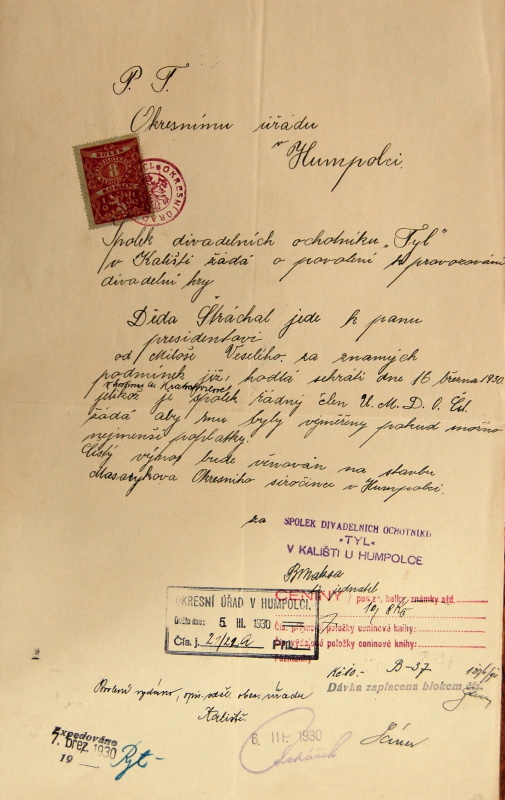 P. T.
Okresnímu úřadu
v
Humpolci.
KOLEK
8
OKRESNÍ ÚŘAD
Spolek divadelních ochotníku „Tyl"
v Kališti žádá o povolení provozování
divadelní hry
Děda Stráchal jede k panu
presidentovi
od Miloše Veselého. za známých
podmínek jíž, hodlá sehráti dne 16 března 1930.
jelikož je spolek řádný člen Ú. M. D. O. Čsl.
žádá aby mu byly vyměřeny pokud možno
nejmenší poplatky.
Čistý výnos bude věnován na stavbu
Masarykova Okresního sirotčince v Humpolci.
za
SPOLEK DIVADELNÍCH OCHOTNÍKŮ
"TYL"
V KALIŠTI U HUMPOLCE
jednatel
CENINY / pen. zn. kolky, známky atd.
10, 8 Kč
OKRESNÍ ÚŘAD V HUMPOLCI.
Došlo dne: 5. III. 1930
Čís. j. Příl.
Čís. příjmové položky ceninové knihy:
Čís. výdajové položky ceninové knihy:
Kč 10.- B-37
Dávka zaplacena blokem čís.
Povolení vydáno, obec. úřadu
Kaliště.
6. III. 1930
Expedováno
7. břez. 1930
19